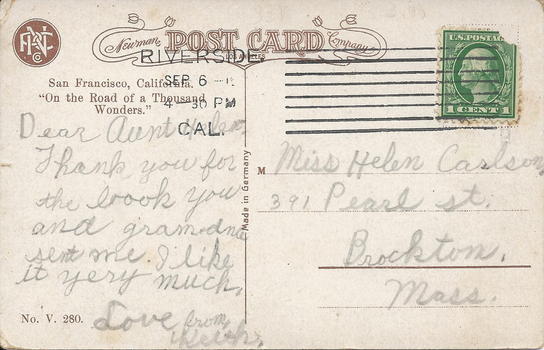 Newman POST CARD Company
RIVERSIDE
SEP 6
4 30 PM
CAL.
U.S. POSTAGE
1 CENT 1
San Francisco, California.
"On the Road of a Thousand
Wonders."
Dear Aunt Helen
Thank you for
the book you
and grandma
sent me. I like
it very much.
Love from
Made in Germany
M
Miss Helen Carlson,
391 Pearl st.
Brockton,
Mass.
No. V. 280.